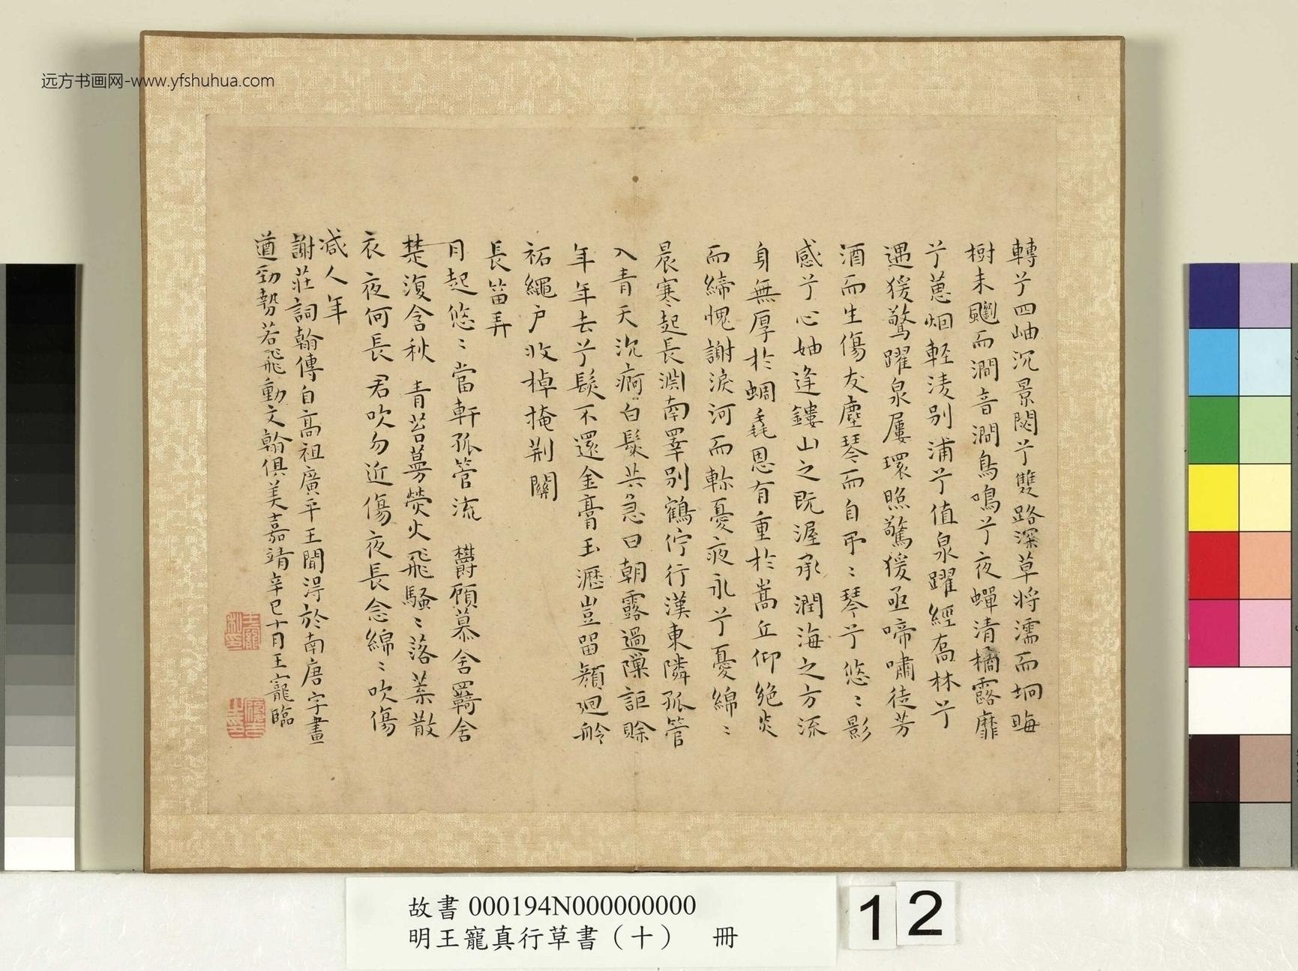 远方书画网-www.yfshuhua.com
轉兮四岫沉景閟兮雙路深草将濡而坰晦
樹未颸而澗音澗鳥鳴兮夜蟬清橘露靡
兮蕙烟輕淩别浦兮值泉躍經喬林兮
遇猨驚躍泉屢環照驚猨亟啼嘯徒芳
酒而生傷友塵琴而自弔弔琴兮悠悠影
感兮心妯逢鏤山之既渥承潤海之方流
身無厚於蜩毳恩有重於嵩丘仰絶炎
而締愧謝淚河而軫憂夜永兮憂綿綿
晨寒起長淵南睪别鶴佇行漢東隣孤管
入青天沉痾白髮共急日朝露過隟詎賒
年年去兮髮不還金膏玉瀝豈留顏廻舲
祏繩户收棹掩荆關
長笛弄
月起悠悠當軒孤管流 欝顧慕含羈含
楚復含秋 青苔蔓熒火飛騷騷落葉散
衣夜何長君吹勿近傷夜長念綿綿吹傷
减人年
謝莊詞翰傳自高祖廣平王間淂於南唐字畫
遒勁勢若飛動文翰俱美嘉靖辛巳十月王寵臨
故書 000194N000000000
明王寵真行草書（十） 冊
12